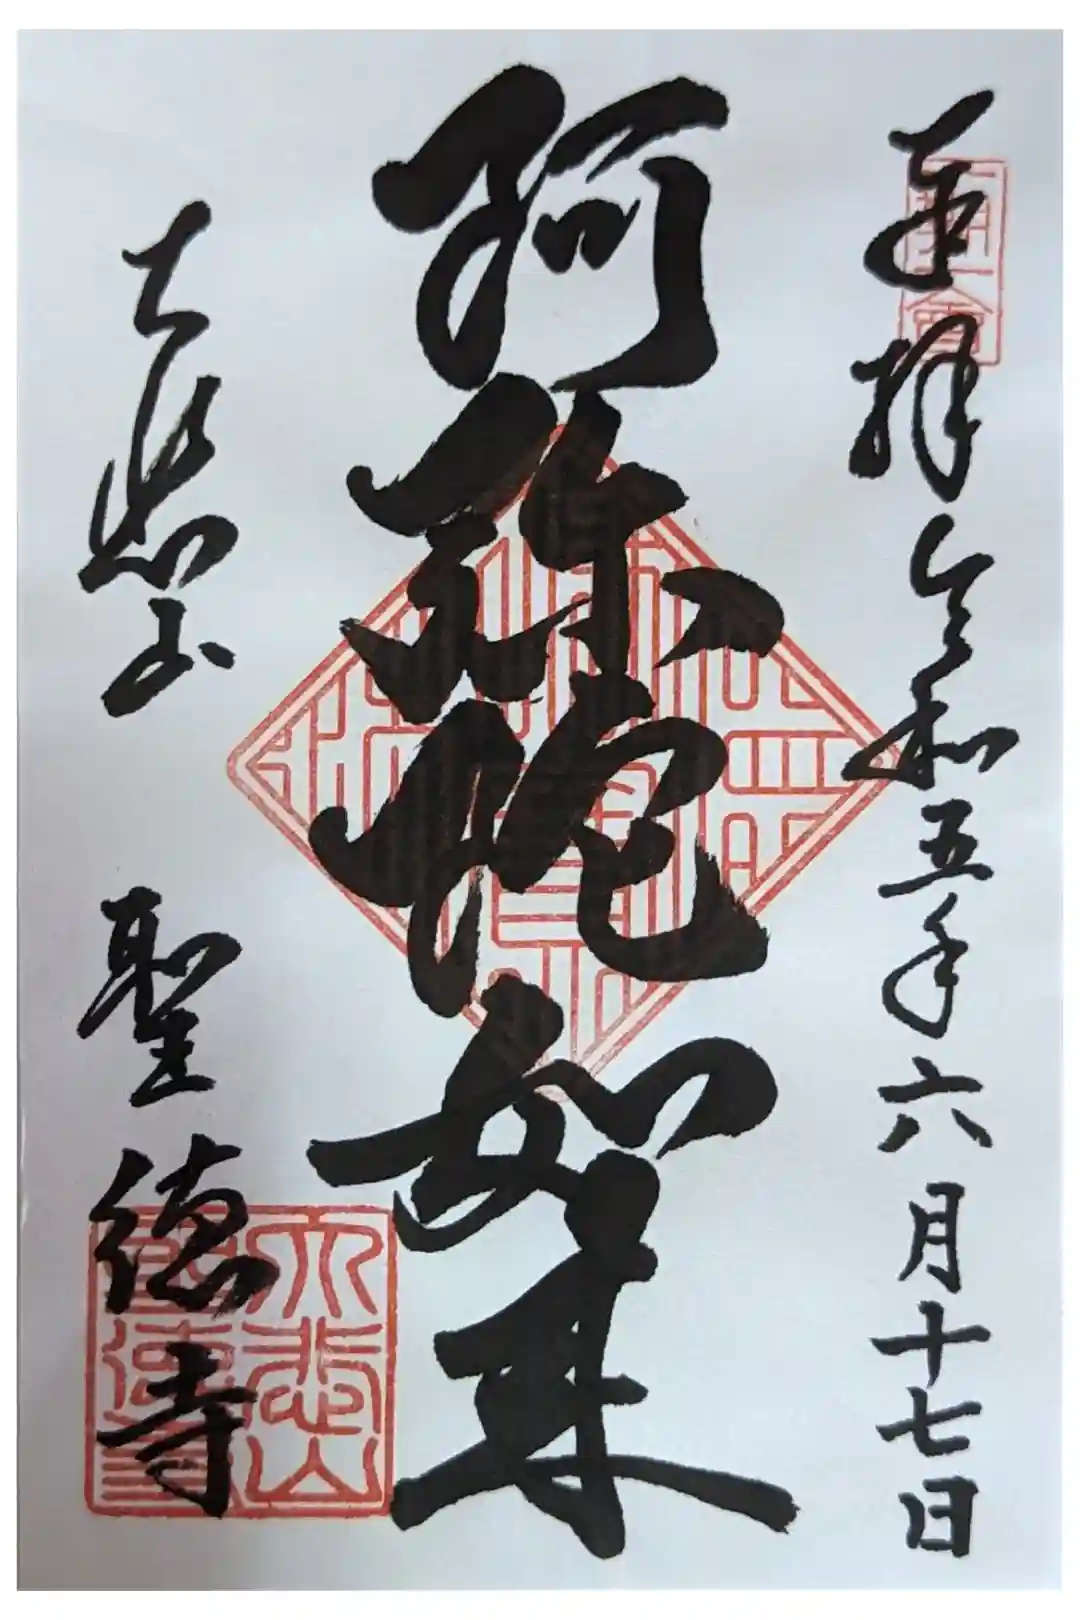 奉拝 令和五年六月十七日
阿弥陀如来
大悲山 聖徳寺